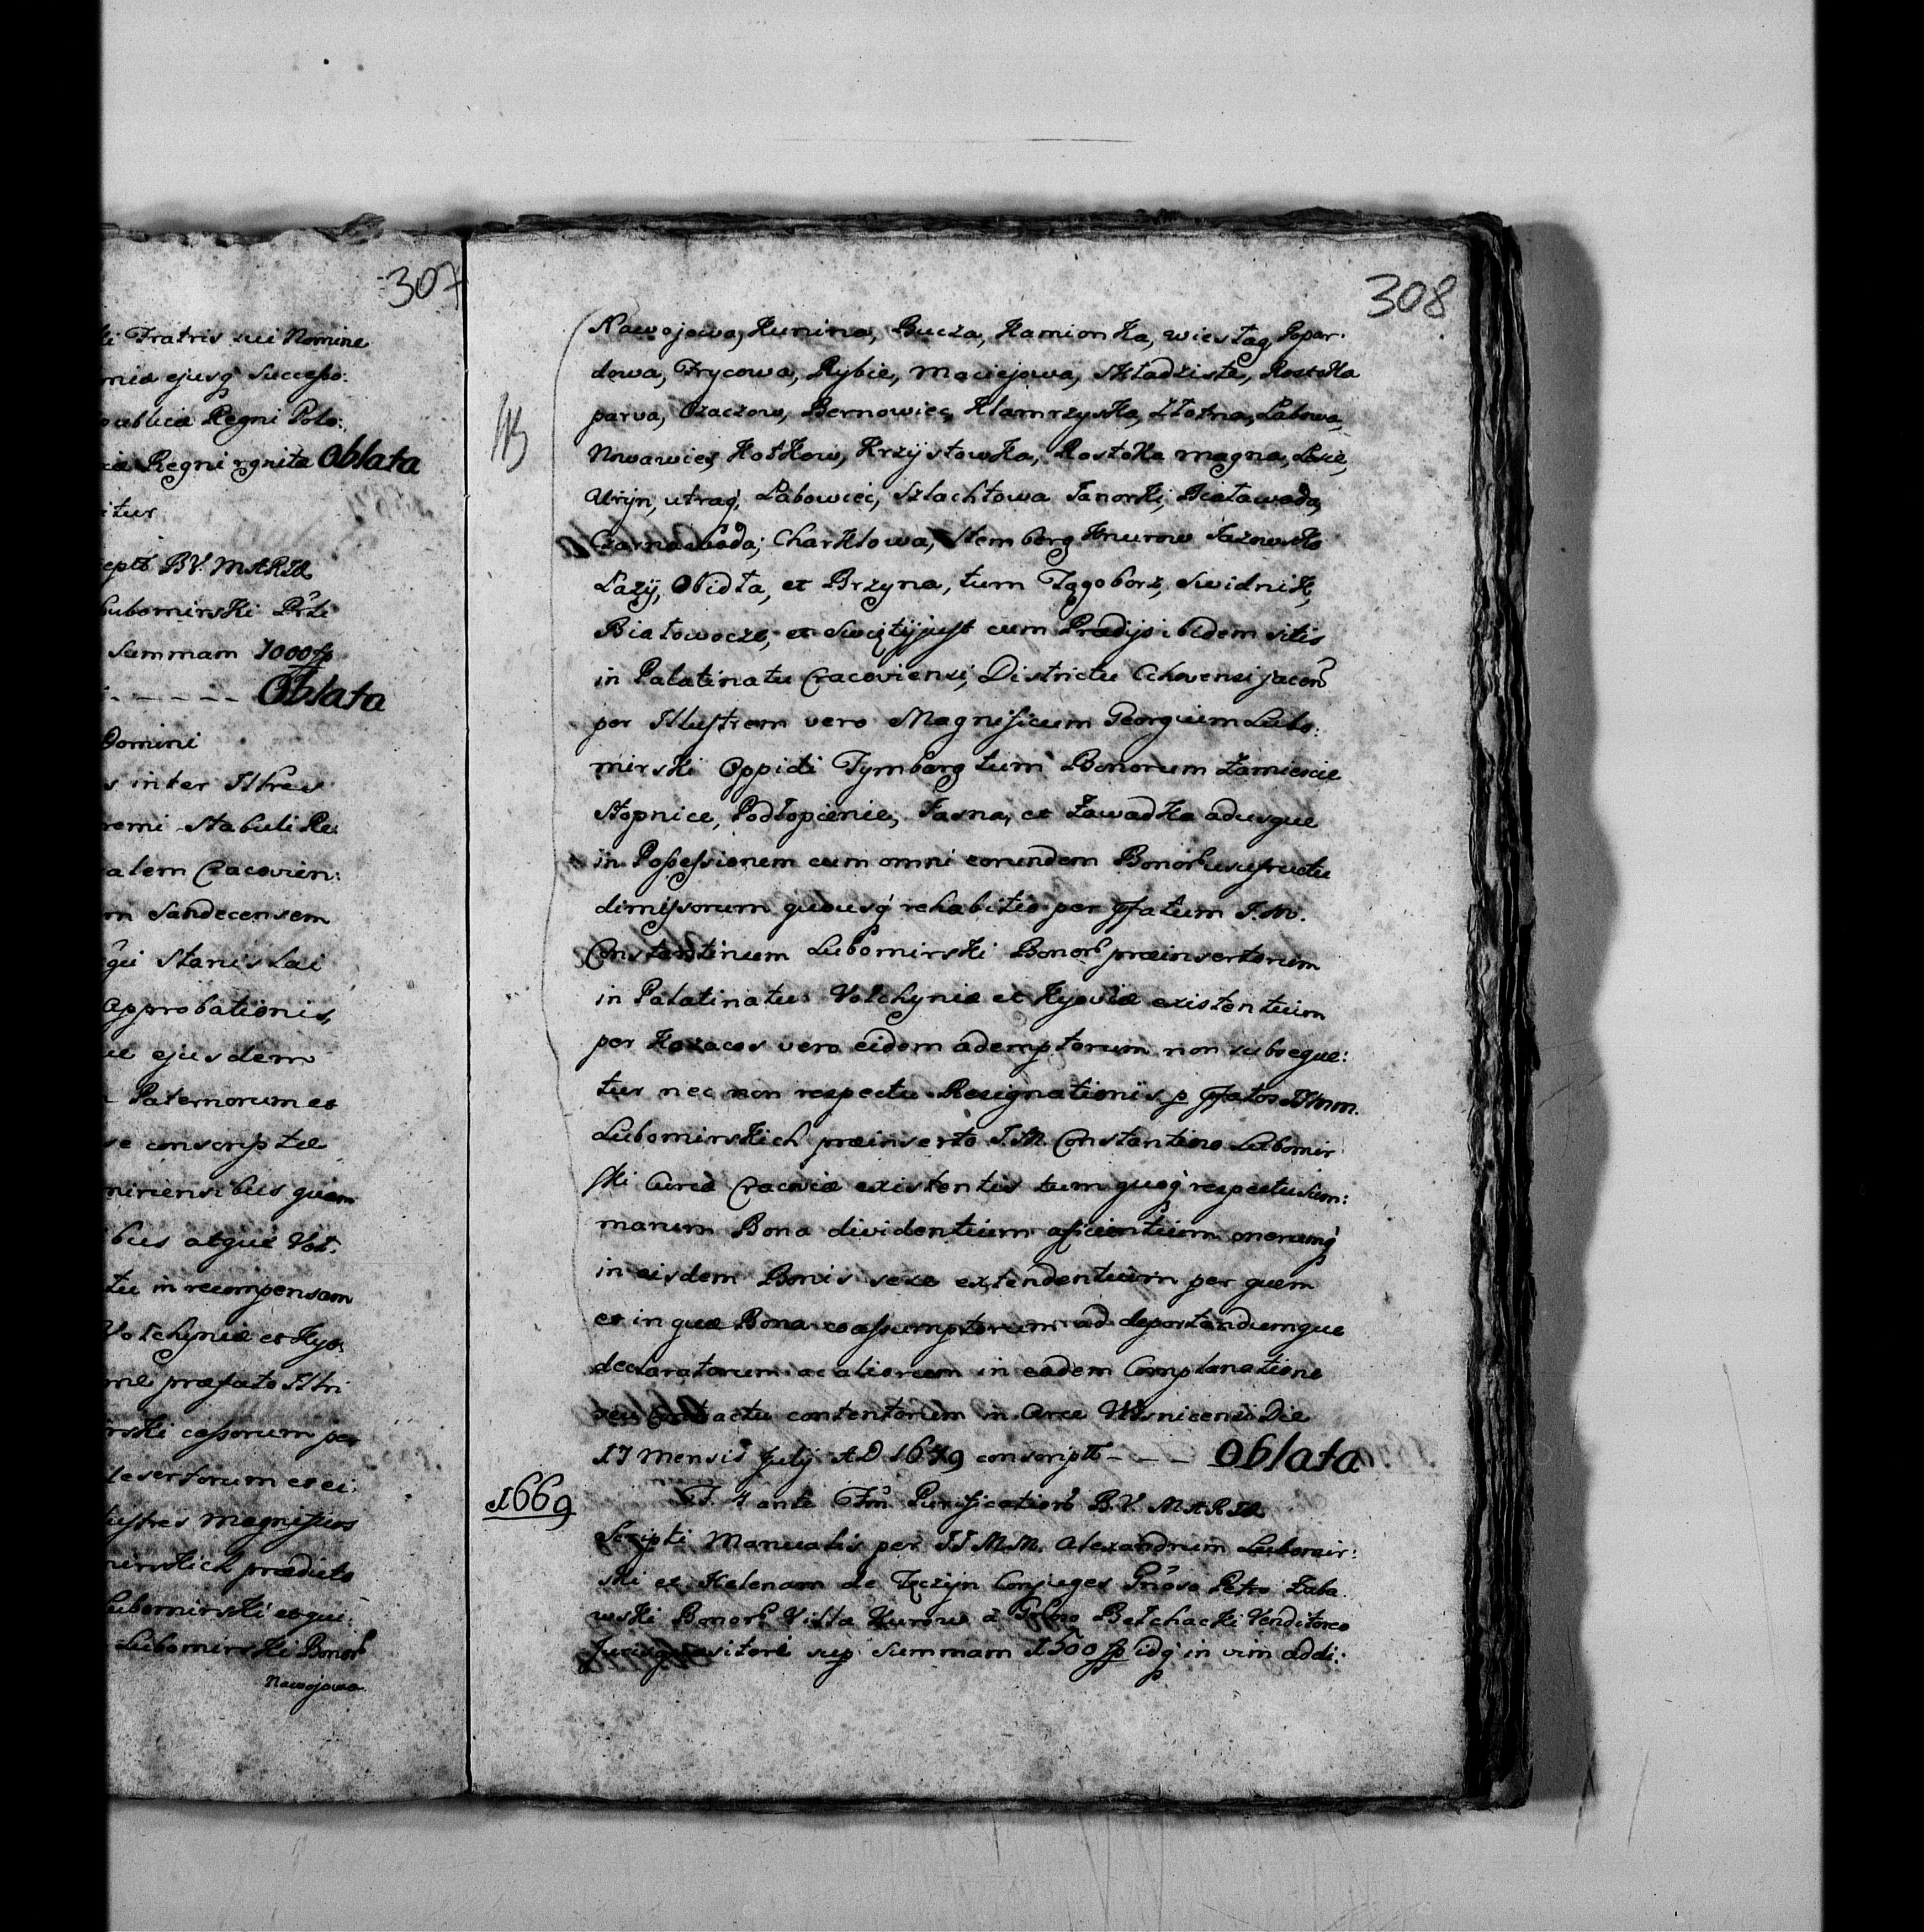 307
ki Fratris sui Nomine
mia ejusq Successo:
publica Regni Polo:
cia Regni rgnita Oblata
itur
cepts B.V. MARIÆ
Lubomirski
Summam 1000
- - - - - Oblata
Domini
s inter Illres
remi Stabuli Re
alem Cracovien:
m Sandecensem
gii Stanislai
Approbationis,
ejusdem
Paternorum et
se conscriptæ
quam
bus atque Vol:
tu in recompensam
Volchyniæ et Kyo:
præfato Illri
rski cessorum per
desertorum et ei:
lustres Magnificos
mirskich prædicto
Lubomirski et qui:
Lubomirski Bonor
Nawojowa
308
Nawojowa, Kunina, Bucza, Kamionka, wiestag, Popar:
dowa, Frycowa, Rybie, Maciejowa, Składziste, Rostoka
parva, Czaczow, Bernowiec, Klamrzyska, Złotna, Łabowa,
Nowawies, Kotkow, Krzyżtowka, Rostoka magna, Łosie,
Uryn, utraq, Łabowiec, Szlachtowa Janorki, Białawoda,
Czarnawoda, Charklowa, Stemberg Knurow Jazowsko
Łazy, Obidza, et Brzyna, tum Tęgoborz, Swidnik,
Białowodze, et cum Prædijs ibidem sitis
in Palatinatu Cracoviensi, Districtu Cchovensi jacen
per Illustrem vero Magnificum Georgium Lubo:
mirski Oppidi Tymbarg tum Bonorum Zamiescie
Stopnice, Podłopienie, Jasna, et Zawadka adusque
in Possessionem cum omni eorundem Bonor usufructu
dimissorum quousq rehabitio per pfatum I. M.
Constantinum Lubomirski Bonor præinsertorum
in Palatinatu Volchyniæ et Kyoviæ existentium
per Kozacos vero eidem ademptorum non subseque:
tur nec non respectu Resignationis p pfatos IImm.
Lubomirskich præinserto I. M. Constantino Lubomir
ski Curiæ Cracoviæ existentis tum quoq respectu Sum:
marum Bona dividentium aficientium onerumq
in eisdem Bonis sese extendentium per quem
et in quæ Bona coassumptorum ad deportandumque
declaratorum ac aliorum in eadem Complanatione
seu Contractu contentorum in Arce Wisnicensi Die
17 Mensis July AD 1649 conscripti - - - Oblata
1669
F. 4 ante Fm Purificationis B.V. MARIÆ
Scripti Manualis per II M.M. Alexandrum Lubomir:
ski et Helenam de Tęczyn Conjuges Gnoso Petro Zaba
wski Bonor Villa Kurow a Gnoso Bełchacki Venditore
sup Summam 1500 idq in vim addi: